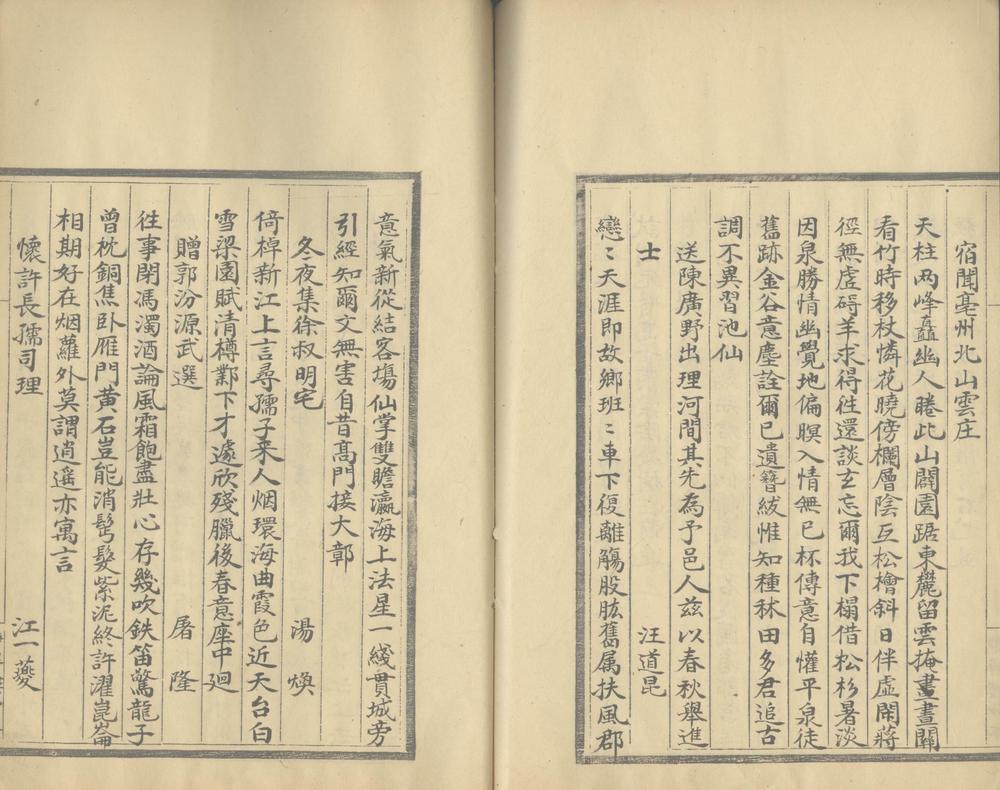 宿聞亳州北山雲庄
天柱两峰矗幽人睠此山闢園踞東麓留雲掩畫晝關
看竹時移杖憐花曉傍欄層陰互松檜斜日伴虛閑蔣
徑無虗碍羊求得徃還談玄忘爾我下榻借松杉暑淡
因泉勝情幽覺地偏暝入情無已杯傳意自懽平泉徒
舊跡金谷意塵詮爾已遺簪紱惟知種秫田多君追古
調不異習池仙
送陳廣野出理河間其先為予邑人兹以春秋舉進
士 汪道昆
戀〻天涯即故鄉班〻車下復離觴股肱舊属扶風郡
意氣新從結客塲仙掌雙瞻瀛海上法星一綫貫城旁
引經知爾文無害自昔髙門接大鄣
冬夜集徐叔明宅 湯煥
倚棹新江上言尋孺子来人烟環海曲霞色近天台白
雪梁園賦清樽鄴下才遽欣殘臘後春意座中廻
贈郭汾源武選 屠隆
徃事閉馮濁酒論風霜飽盡壯心存幾吹鉄笛驚龍子
曾枕銅焦卧雁門黄石豈能消髩髮紫泥終許濯崑崙
相期好在烟蘿外莫謂逍遥亦寓言
懷許長孺司理 江一夔